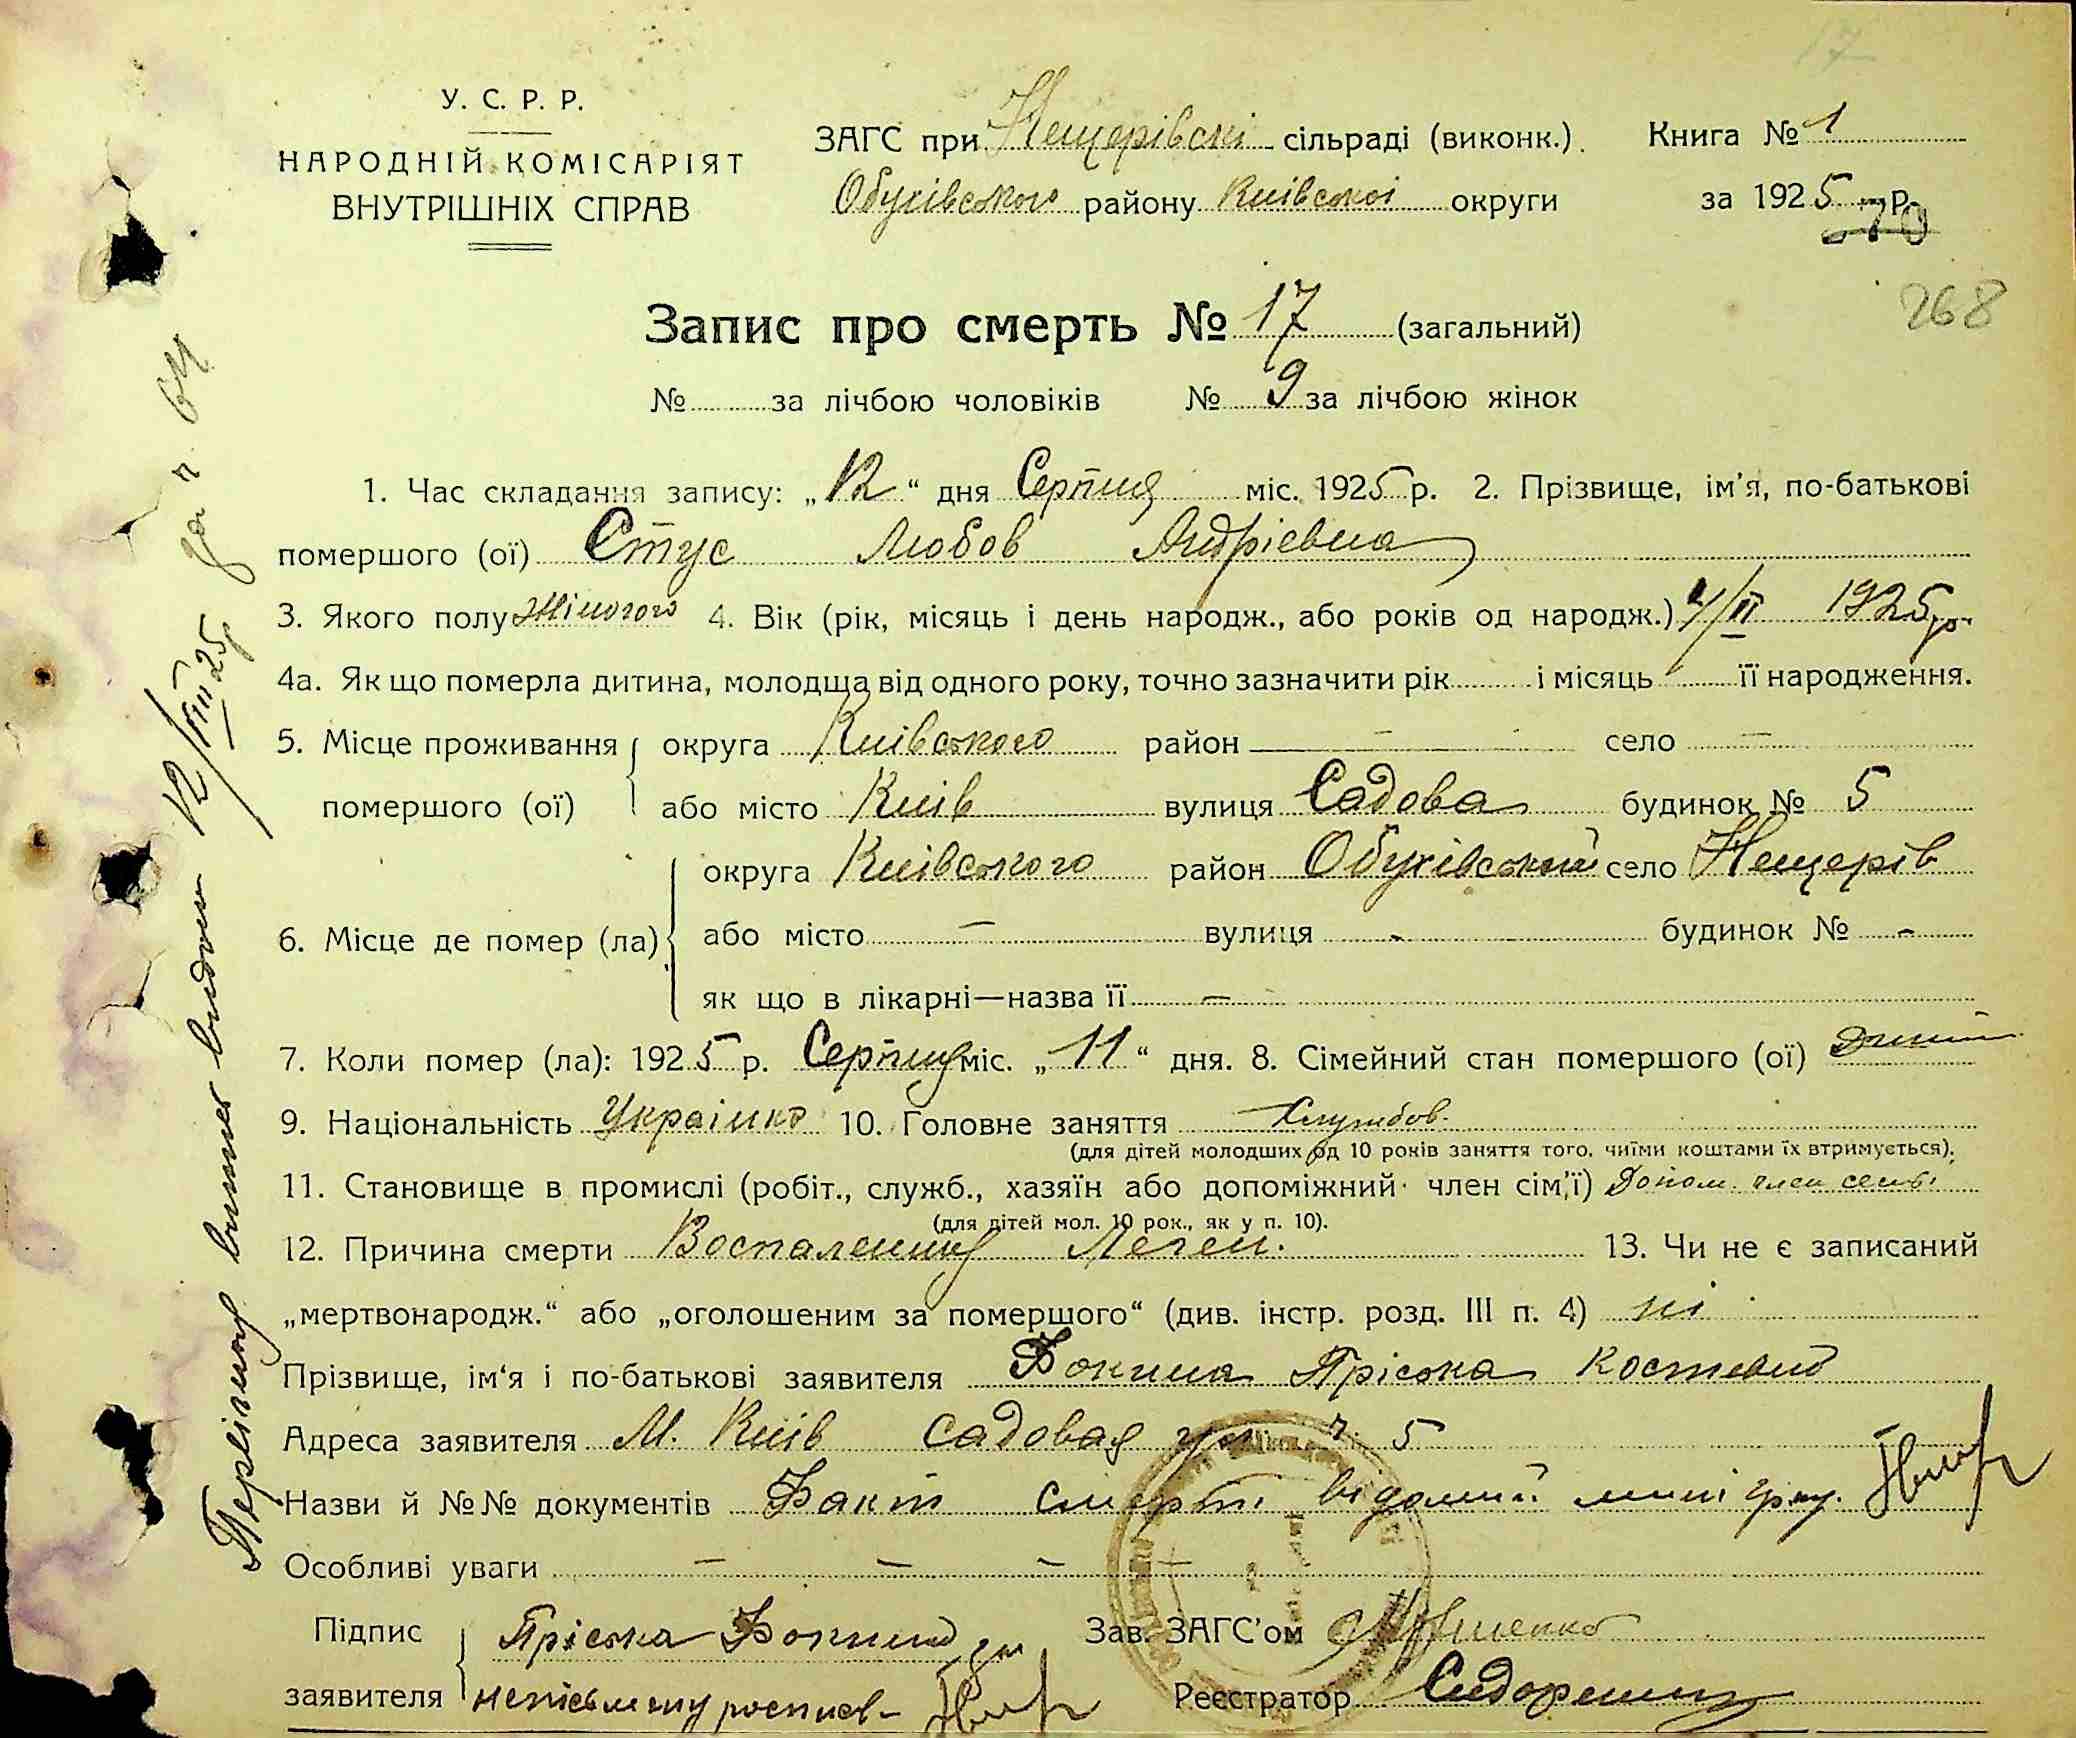 17
У. С. Р. Р.
НАРОДНІЙ КОМІСАРІЯТ
ВНУТРІШНІХ СПРАВ
ЗАГС при Нещерівскі сільраді (виконк.). Книга № 1
Обухівського району Київської округи за 1925 р.
70
268
Запис про смерть № 17 (загальний)
№ за лічбою чоловіків № 9 за лічбою жінок
1. Час складання запису: „12“ дня Серпня міс. 1925 р. 2. Прізвище, ім'я, по-батькові
помершого (ої) Стус Любов Андрієвна
3. Якого полу жіночого 4. Вік (рік, місяць і день народж., або років од народж.) 4/II 1925 р.
4а. Як що померла дитина, молодща від одного року, точно зазначити рік і місяць її народження.
5. Місце проживання округа Київського район — село —
помершого (ої) або місто Київ вулиця Садова будинок № 5
округа Київського район Обухівський село Нещерів
6. Місце де помер (ла) або місто — вулиця - будинок № -
як що в лікарні—назва її —
7. Коли помер (ла): 1925 р. Серпня міс. „11“ дня. 8. Сімейний стан помершого (ої)
9. Національність Українка 10. Головне заняття Службов.
(для дітей молодших од 10 років заняття того, чиїми коштами їх втримується).
11. Становище в промислі (робіт., служб., хазяїн або допоміжний член сім'ї) Допом. член семьї
(для дітей мол. 10 рок., як у п. 10).
12. Причина смерти Воспаления Леген. 13. Чи не є записаний
„мертвонародж.“ або „оголошеним за помершого“ (див. інстр. розд. III п. 4) ні
Прізвище, ім'я і по-батькові заявителя Фокина Пріська
Адреса заявителя М. Київ Садовая ул ч. 5
Назви й №№ документів Факт смерті відомий
Особливі уваги — — — —
Підпис Пріська Зав. ЗАГС'ом
заявителя Реєстратор Сидоренко
12/VIII 25р за n 64